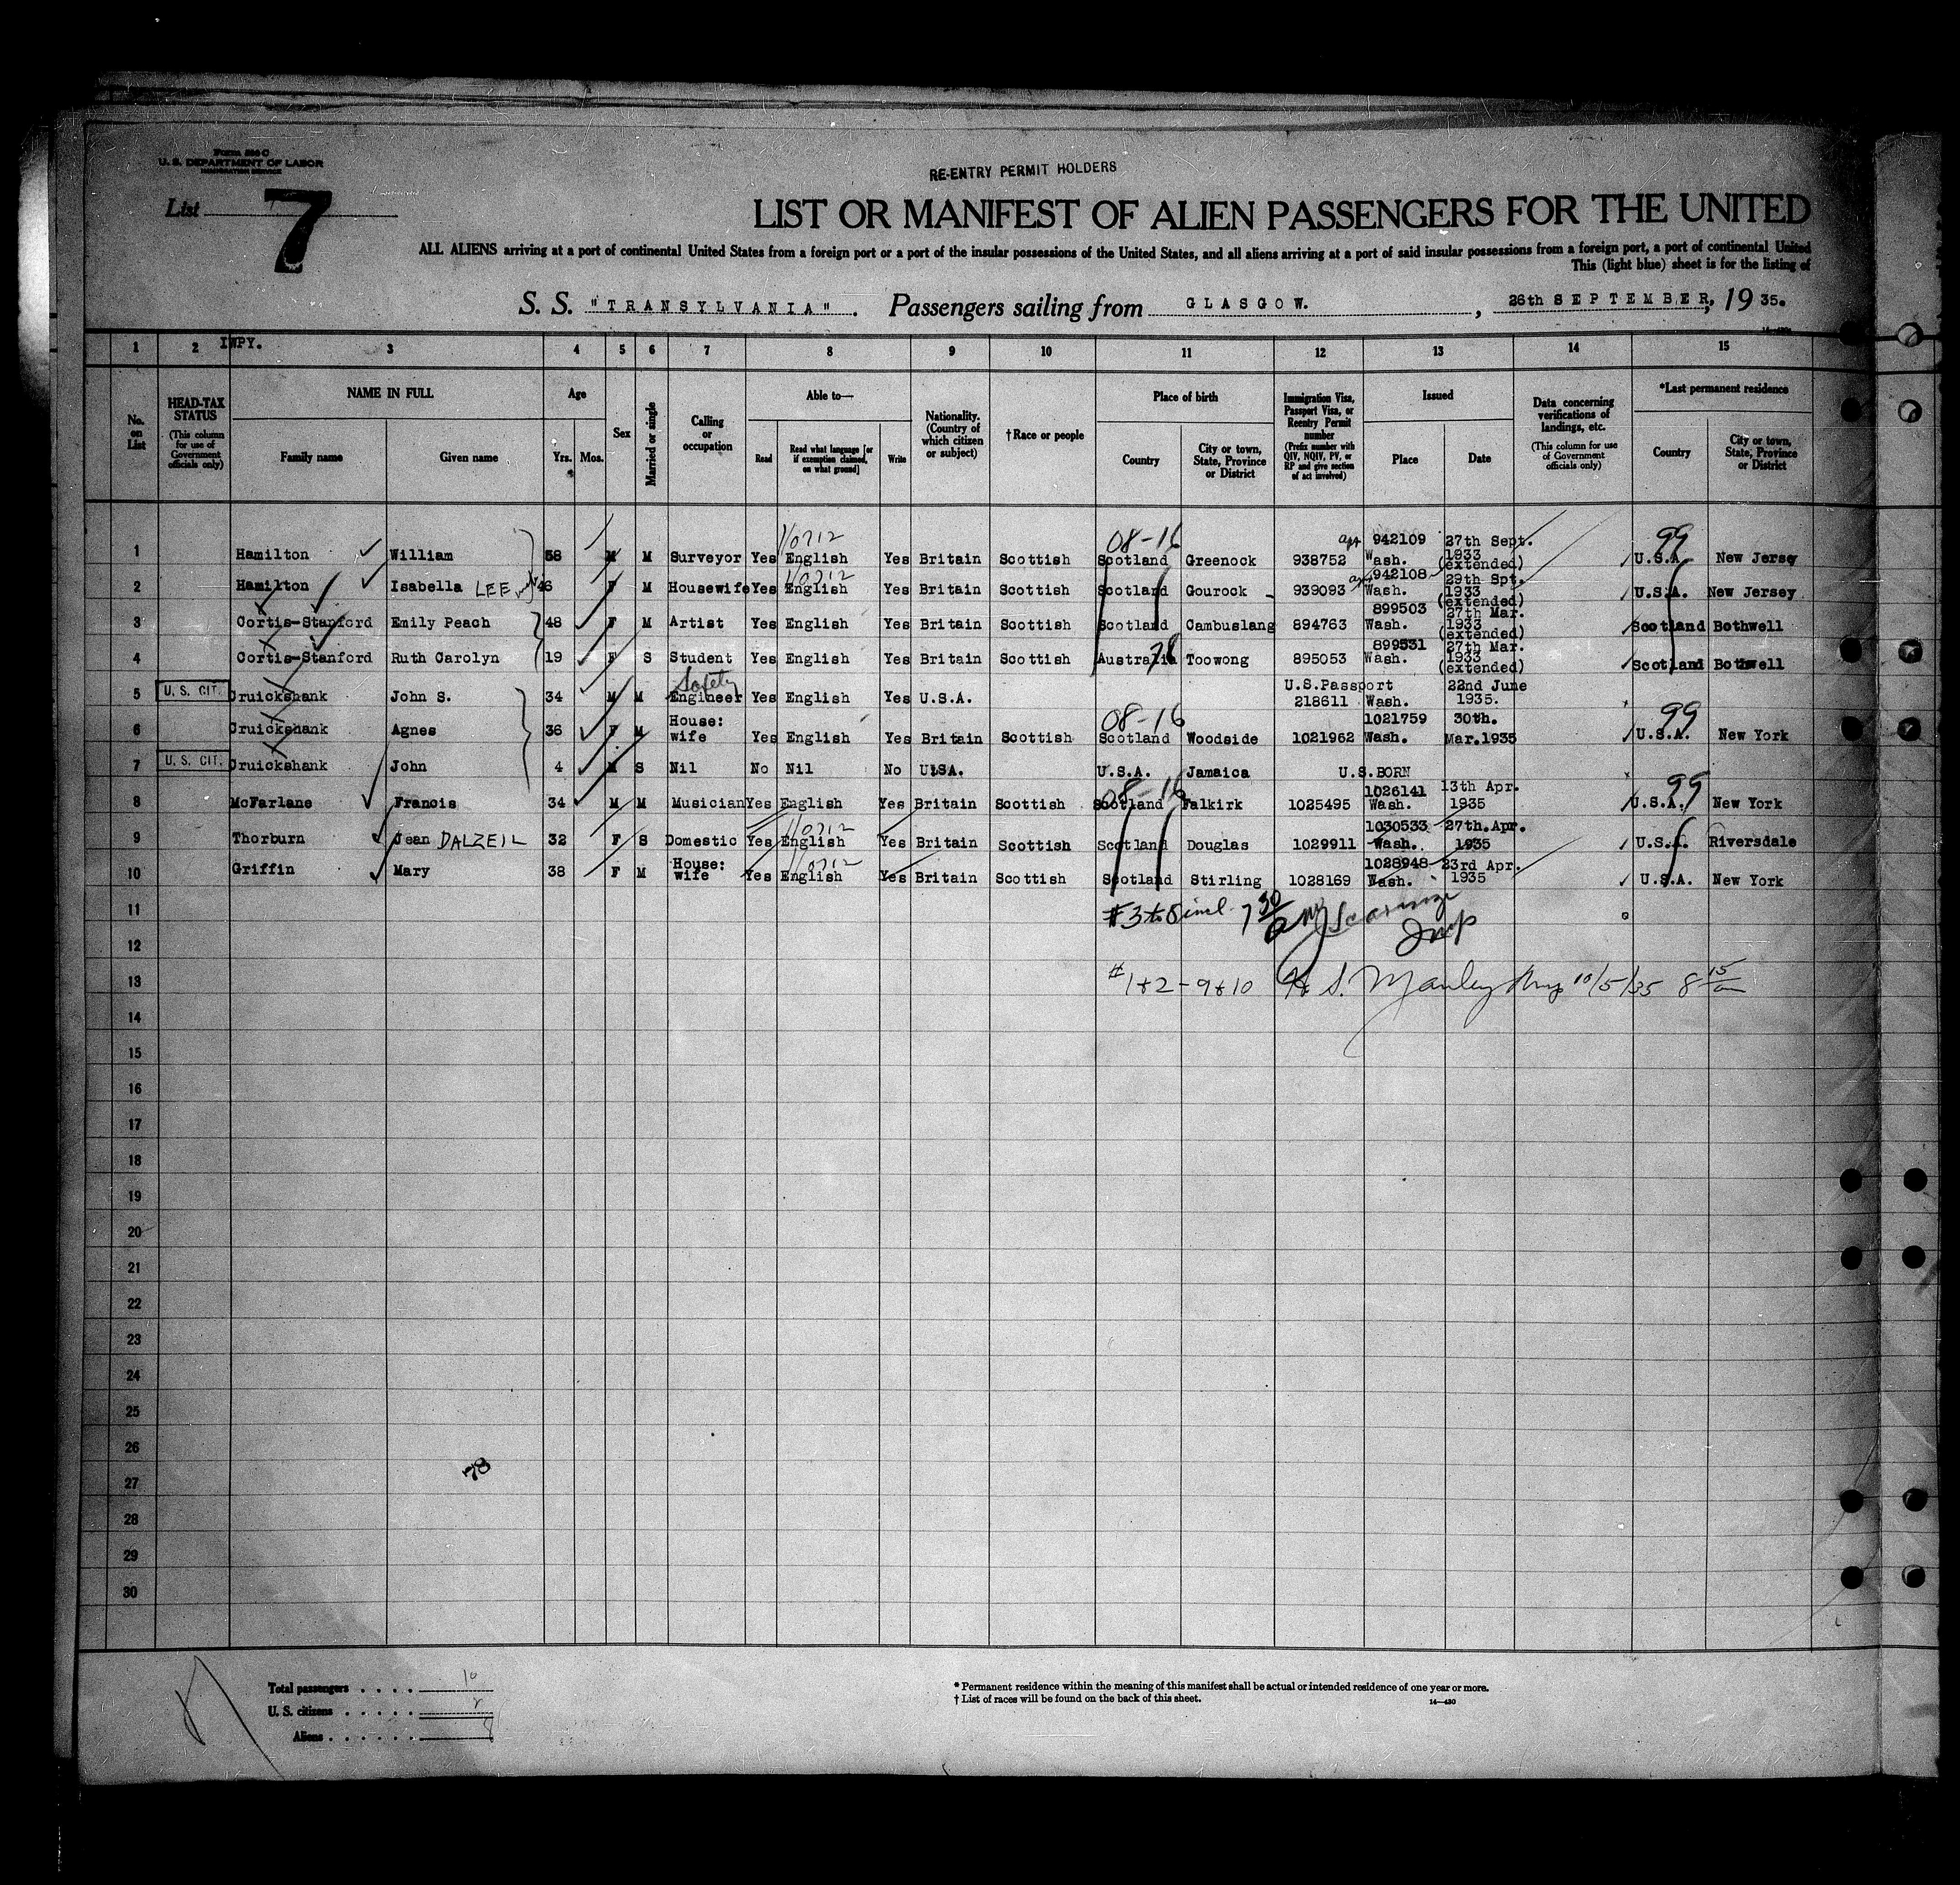 Form 500 C
U. S. DEPARTMENT OF LABOR
IMMIGRATION SERVICE
RE-ENTRY PERMIT HOLDERS
List 7
LIST OR MANIFEST OF ALIEN PASSENGERS FOR THE UNITED
ALL ALIENS arriving at a port of continental United States from a foreign port or a port of the insular possessions of the United States, and all aliens arriving at a port of said insular possessions from a foreign port, a port of continental United
This (light blue) sheet is for the listing of
S. S. "TRANSYLVANIA". Passengers sailing from GLASGOW. , 26th SEPTEMBER, 19 35.
1 2 IWPY. 3 4 5 6 7 8 9 10 11 12 13 14 15
No. on List
HEAD-TAX STATUS (This column for use of Government officials only)
NAME IN FULL
Family name Given name
Age
Yrs. Mos.
Sex
Married or single
Calling or occupation
Able to—
Read Read what language [or if exemption claimed, on what ground] Write
Nationality. (Country of which citizen or subject)
†Race or people
Place of birth
Country City or town, State, Province or District
Immigration Visa, Passport Visa, or Reentry Permit number (Prefix number with QIV, NQIV, PV, or RP and give section of act involved)
Issued
Place Date
Data concerning verifications of landings, etc. (This column for use of Government officials only)
*Last permanent residence
Country City or town, State, Province or District
1 Hamilton William 58 M M Surveyor Yes English Yes Britain Scottish 08-16 Scotland Greenock 938752 942109 Wash. 27th Sept. 1933 (extended) 99 U.S.A. New Jersey
2 Hamilton Isabella LEE 46 F M Housewife Yes English Yes Britain Scottish Scotland Gourock 939093 942108 Wash. 29th Spt. 1933 (extended) U.S.A. New Jersey
3 Cortis-Stanford Emily Peach 48 F M Artist Yes English Yes Britain Scottish Scotland Cambuslang 894763 899503 Wash. 27th Mar. 1933 (extended) Scotland Bothwell
4 Cortis-Stanford Ruth Carolyn 19 F S Student Yes English Yes Britain Scottish Australia 78 Toowong 895053 899531 Wash. 27th Mar. 1933 (extended) Scotland Bothwell
5 U. S. CIT. Cruickshank John S. 34 M M Safety Engineer Yes English Yes U.S.A. U.S.Passport 218611 Wash. 22nd June 1935.
6 Cruickshank Agnes 36 F M House: wife Yes English Yes Britain Scottish 08-16 Scotland Woodside 1021962 1021759 Wash. 30th. Mar.1935 99 U.S.A. New York
7 U. S. CIT. Cruickshank John 4 M S Nil No Nil No USA. U.S.A. Jamaica U.S.BORN
8 McFarlane Francis 34 M M Musician Yes English Yes Britain Scottish 08-16 Scotland Falkirk 1025495 1026141 Wash. 13th Apr. 1935 99 U.S.A. New York
9 Thorburn Jean DALZEIL 32 F S Domestic Yes English Yes Britain Scottish Scotland Douglas 1029911 1030533 Wash. 27th.Apr. 1935 U.S.A. Riversdale
10 Griffin Mary 38 F M House: wife Yes English Yes Britain Scottish Scotland Stirling 1028169 1028948 Wash. 23rd Apr. 1935 U.S.A. New York
11 #3 to 8 incl. 7 30
12 Insp
13 #1+2-9+10 H S. Manley Insp 10/5/35 8 15
14
15
16
17
18
19
20
21
22
23
24
25
26
27
78
28
29
30
Total passengers . . . . 10
U. S. citizens . . . . . 2
Aliens . . . . . . 8
* Permanent residence within the meaning of this manifest shall be actual or intended residence of one year or more.
† List of races will be found on the back of this sheet.
14—430